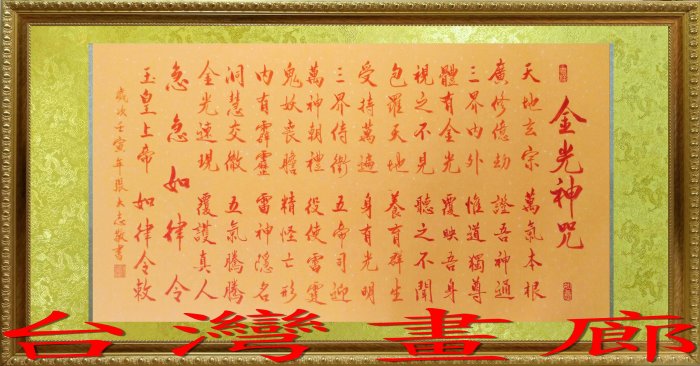 金光神咒
天地玄宗 萬氣本根
廣修億劫 證吾神通
三界內外 惟道獨尊
體有金光 覆映吾身
視之不見 聽之不聞
包羅天地 養育群生
受持萬遍 身有光明
三界侍衛 五帝司迎
萬神朝禮 役使雷霆
鬼妖喪膽 精怪亡形
內有霹靂 雷神隱名
洞慧交徹 五氣騰騰
金光速現 覆護真人
急急如律令
玉皇上帝 如律令敕
歲次壬寅年張大志敬書
台灣畫廊